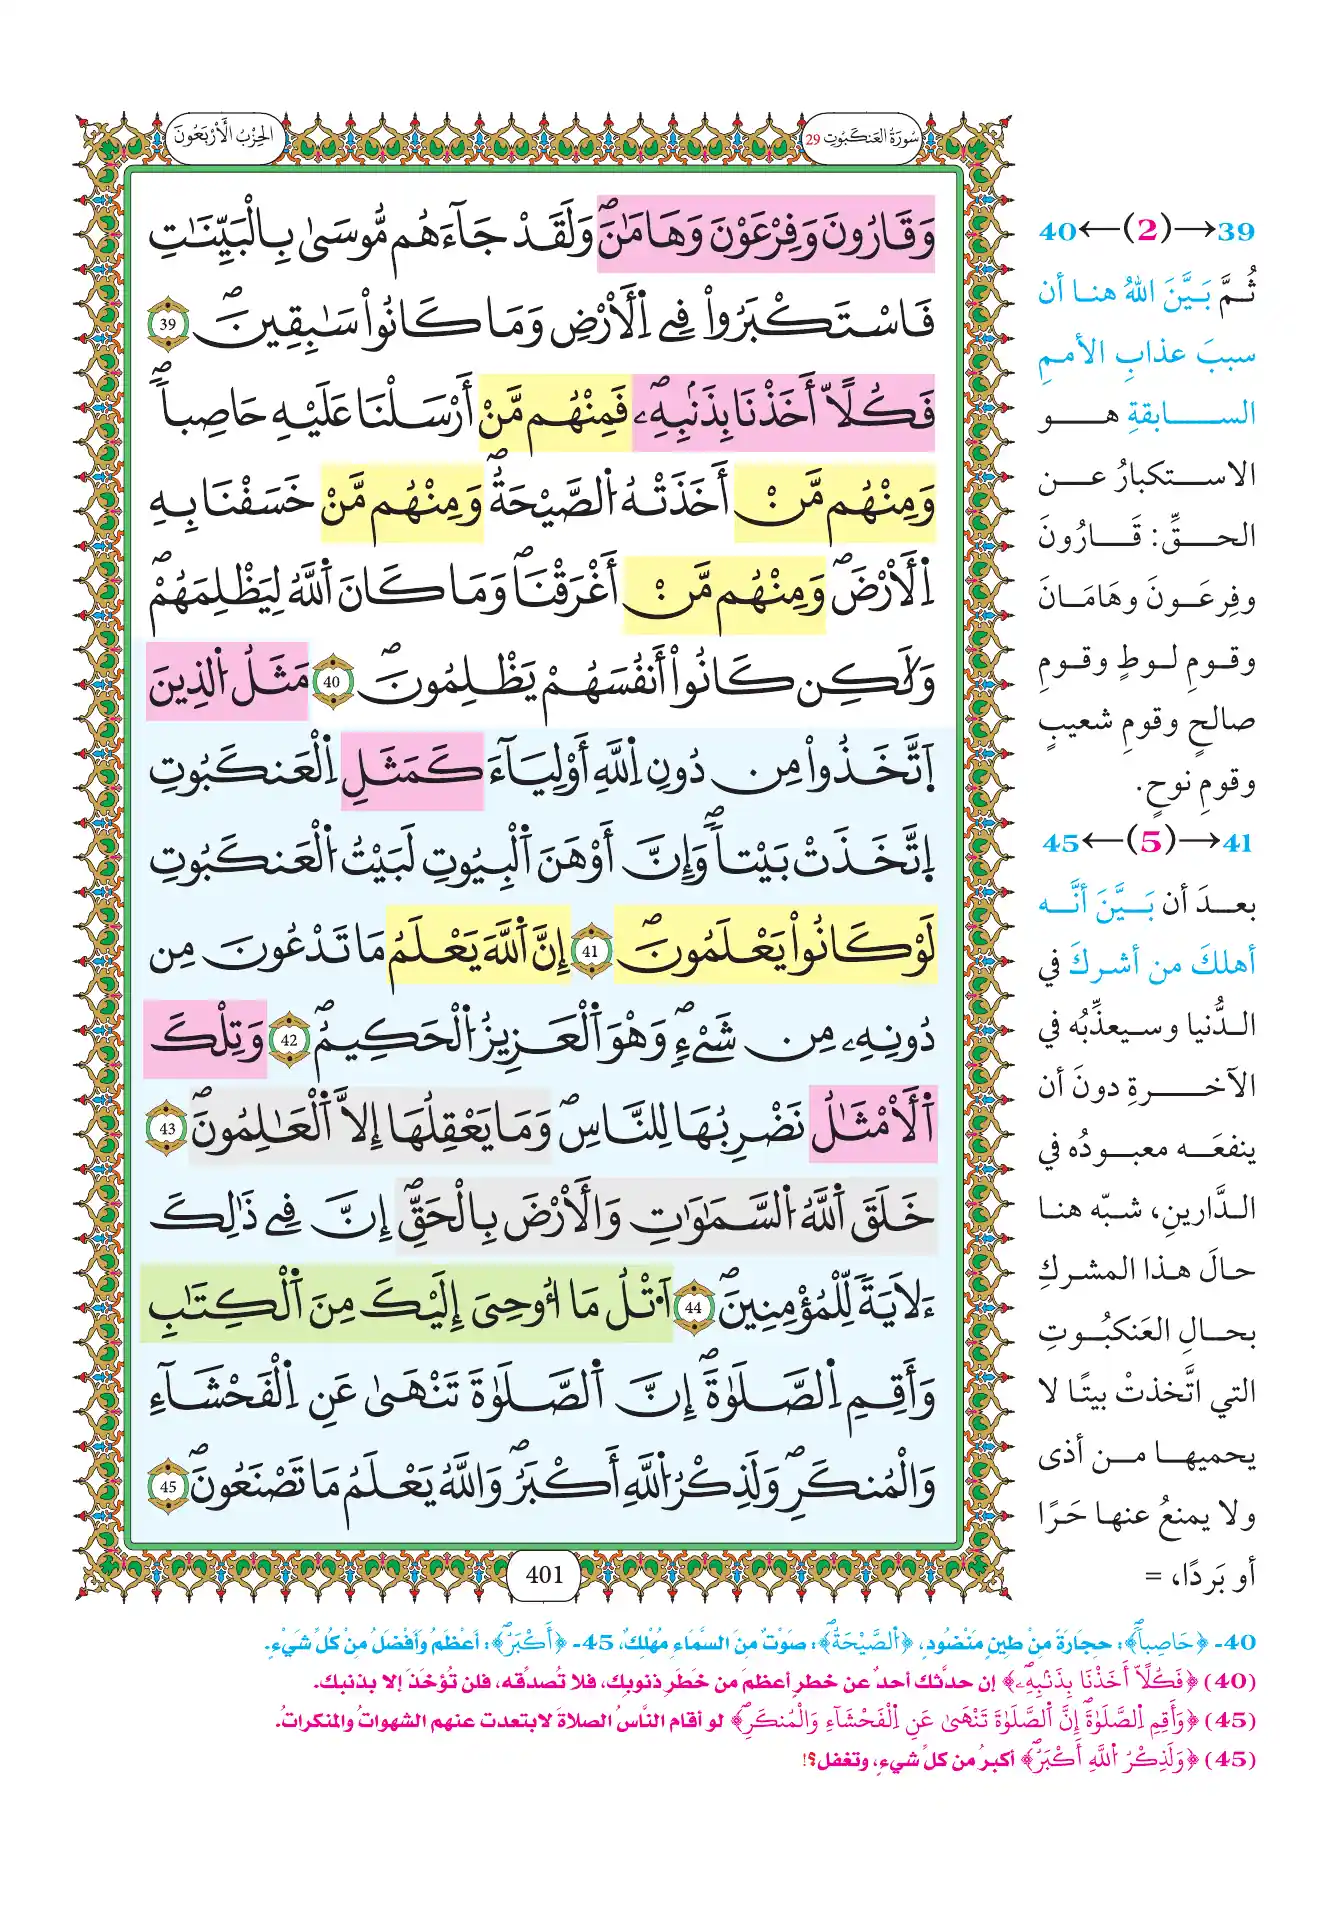 سُورَةُ العَنكَبُوتِ 29
الحِزْبُ الَارْبَعُونَ
وَقَٰرُونَ وَفِرْعَوْنَ وَهَٰمَٰنَۖ وَلَقَدْ جَآءَهُم مُّوسَىٰ بِالْبَيِّنَٰتِ
فَاسْتَكْبَرُواْ فِے اِ۬لَارْضِ وَمَا كَانُواْ سَٰبِقِينَۖ 39
فَكُلّاً اَخَذْنَا بِذَنۢبِهِۦۖ فَمِنْهُم مَّنَ اَرْسَلْنَا عَلَيْهِ حَاصِباٗۖ
وَمِنْهُم مَّنَ اَخَذَتْهُ اُ۬لصَّيْحَةُۖ وَمِنْهُم مَّنْ خَسَفْنَا بِهِ
اِ۬لَارْضَۖ وَمِنْهُم مَّنَ اَغْرَقْنَاۖ وَمَا كَانَ اَ۬للَّهُ لِيَظْلِمَهُمْۖ
وَلَٰكِن كَانُوٓاْ أَنفُسَهُمْ يَظْلِمُونَۖ 40 مَثَلُ اُ۬لذِينَ
اَ۪تَّخَذُواْ مِن دُونِ اِ۬للَّهِ أَوْلِيَآءَ كَمَثَلِ اِ۬لْعَنكَبُوتِ
اِ۪تَّخَذَتْ بَيْتاٗۖ وَإِنَّ أَوْهَنَ اَ۬لْبِيُوتِ لَبَيْتُ اُ۬لْعَنكَبُوتِ
لَوْ كَانُواْ يَعْلَمُونَۖ 41 إِنَّ اَ۬للَّهَ يَعْلَمُ مَا تَدْعُونَ مِن
دُونِهِۦ مِن شَےْءٖۖ وَهْوَ اَ۬لْعَزِيزُ اُ۬لْحَكِيمُۖ 42 وَتِلْكَ
اَ۬لَامْثَٰلُ نَضْرِبُهَا لِلنَّاسِۖ وَمَا يَعْقِلُهَآ إِلَّا اَ۬لْعَٰلِمُونَۖ 43
خَلَقَ اَ۬للَّهُ اُ۬لسَّمَٰوَٰتِ وَالَارْضَ بِالْحَقِّۖ إِنَّ فِے ذَٰلِكَ
ءَلَايَةٗ لِّلْمُومِنِينَۖ 44 اَ۟تْلُ مَآ أُوحِيَ إِلَيْكَ مِنَ اَ۬لْكِتَٰبِ
وَأَقِمِ اِ۬لصَّلَوٰةَۖ إِنَّ اَ۬لصَّلَوٰةَ تَنْهَىٰ عَنِ اِ۬لْفَحْشَآءِ
وَالْمُنكَرِۖ وَلَذِكْرُ اُ۬للَّهِ أَكْبَرُۖ وَاللَّهُ يَعْلَمُ مَا تَصْنَعُونَۖ 45
401
39→(2)←40
ثُمَّ بَيَّنَ اللهُ هنا أن
سببَ عذابِ الأممِ
السابقةِ هو
الاستكبارُ عن
الحقِّ: قَارُونَ
وفِرعَونَ وهَامَانَ
وقومِ لوطٍ وقومِ
صالحٍ وقومِ شعيبٍ
وقومِ نوحٍ.
41→(5)←45
بعدَ أن بَيَّنَ أنَّه
أهلكَ من أشركَ في
الدُّنيا وسيعذِّبُه في
الآخرةِ دونَ أن
ينفعَه معبودُه في
الدَّارينِ، شبّه هنا
حالَ هذا المشركِ
بحالِ العَنكبُوتِ
التي اتَّخذتْ بيتًا لا
يحميها من أذى
ولا يمنعُ عنها حَرًا
أو بَردًا، =
40- ﴿حَاصِباٗۖ﴾: حِجَارَةً مِنْ طِينٍ مَنْضُودٍ، ﴿اُ۬لصَّيْحَةُۖ﴾: صَوْتٌ مِنَ السَّمَاءِ مُهْلِكٌ، 45- ﴿أَكْبَرُۖ﴾: أَعْظَمُ وَأَفْضَلُ مِنْ كُلِّ شَيْءٍ.
(40) ﴿فَكُلّاً اَخَذْنَا بِذَنۢبِهِۦۖ﴾ إن حدَّثك أحدٌ عن خطرٍ أعظمَ من خَطَرِ ذنوبِك، فلا تُصدِّقه، فلن تُؤخَذَ إلا بذنبك.
(45) ﴿وَأَقِمِ اِ۬لصَّلَوٰةَۖ إِنَّ اَ۬لصَّلَوٰةَ تَنْهَىٰ عَنِ اِ۬لْفَحْشَآءِ وَالْمُنكَرِۖ﴾ لو أقام النَّاسُ الصلاةَ لابتعدت عنهم الشهواتُ والمنكراتُ.
(45) ﴿وَلَذِكْرُ اُ۬للَّهِ أَكْبَرُۖ﴾ أكبرُ من كلِّ شيءٍ، وتغفل؟!